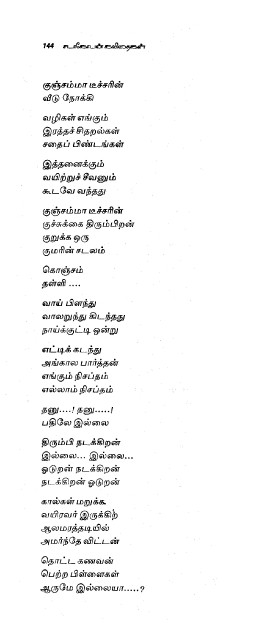 144
குஞ்சம்மா டீச்சரின்
வீடு நோக்கி
வழிகள் எங்கும்
இரத்தச் சிதறல்கள்
சதைப் பிண்டங்கள்
இத்தனைக்கும்
வயிற்றுச் சீவனும்
கூடவே வந்தது
குஞ்சம்மா டீச்சரின்
குச்சுக்கை திரும்பிறன்
குறுக்க ஒரு
குமரின் சடலம்
கொஞ்சம்
தள்ளி ....
வாய் பிளந்து
வாலறுந்து கிடந்தது
நாய்க்குட்டி ஒன்று
எட்டிக் கடந்து
அங்கால பார்த்தன்
எங்கும் நிசப்தம்
எல்லாம் நிசப்தம்
தனு....! தனு.....!
பதிலே இல்லை
திரும்பி நடக்கிறன்
இல்லை... இல்லை...
ஓடுறன் நடக்கிறன்
நடக்கிறன் ஓடுறன்
கால்கள் மறுக்க
வயிரவர் இருக்கிற
ஆலமரத்தடியில்
அமர்ந்தே விட்டன்
தொட்ட கணவன்
பெற்ற பிள்ளைகள்
ஆருமே இல்லையா.....?